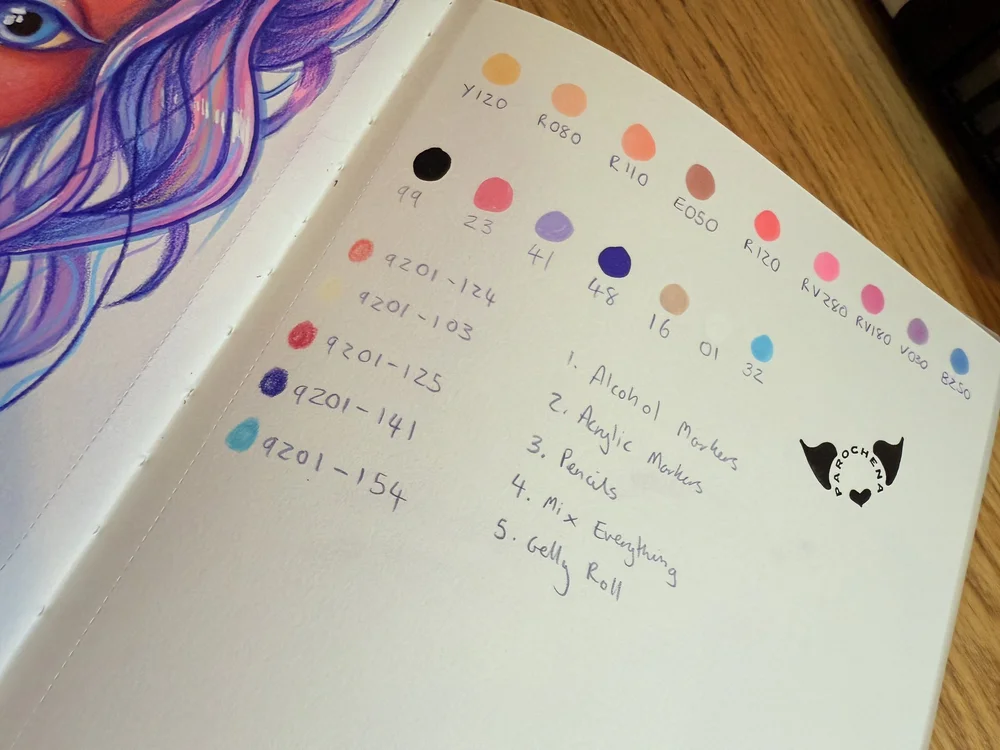 Y120 R080 R110 E050 R120 RV280 RV180 V030 B250
99 23 41 48 16 01 32
9201-124
9201-103
9201-125
9201-141
9201-154
1. Alcohol Markers
2. Acrylic Markers
3. Pencils
4. Mix Everything
5. Gelly Roll
PAROCHENA